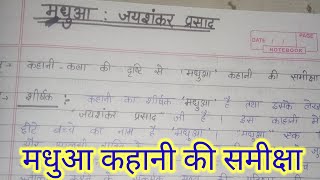 मधुआ : जयशंकर प्रसाद
DATE
NOTEBOOK
कहानी-कला की दृष्टि से 'मधुआ' कहानी की समीक्षा
शीर्षक : कहानी का शीर्षक 'मधुआ' है तथा इसके लेखक
'जयशंकर प्रसाद' जी हैं। इस कहानी में
छोटे बच्चे का नाम है 'मधुआ'। 'मधुआ' एक
मधुआ कहानी की समीक्षा